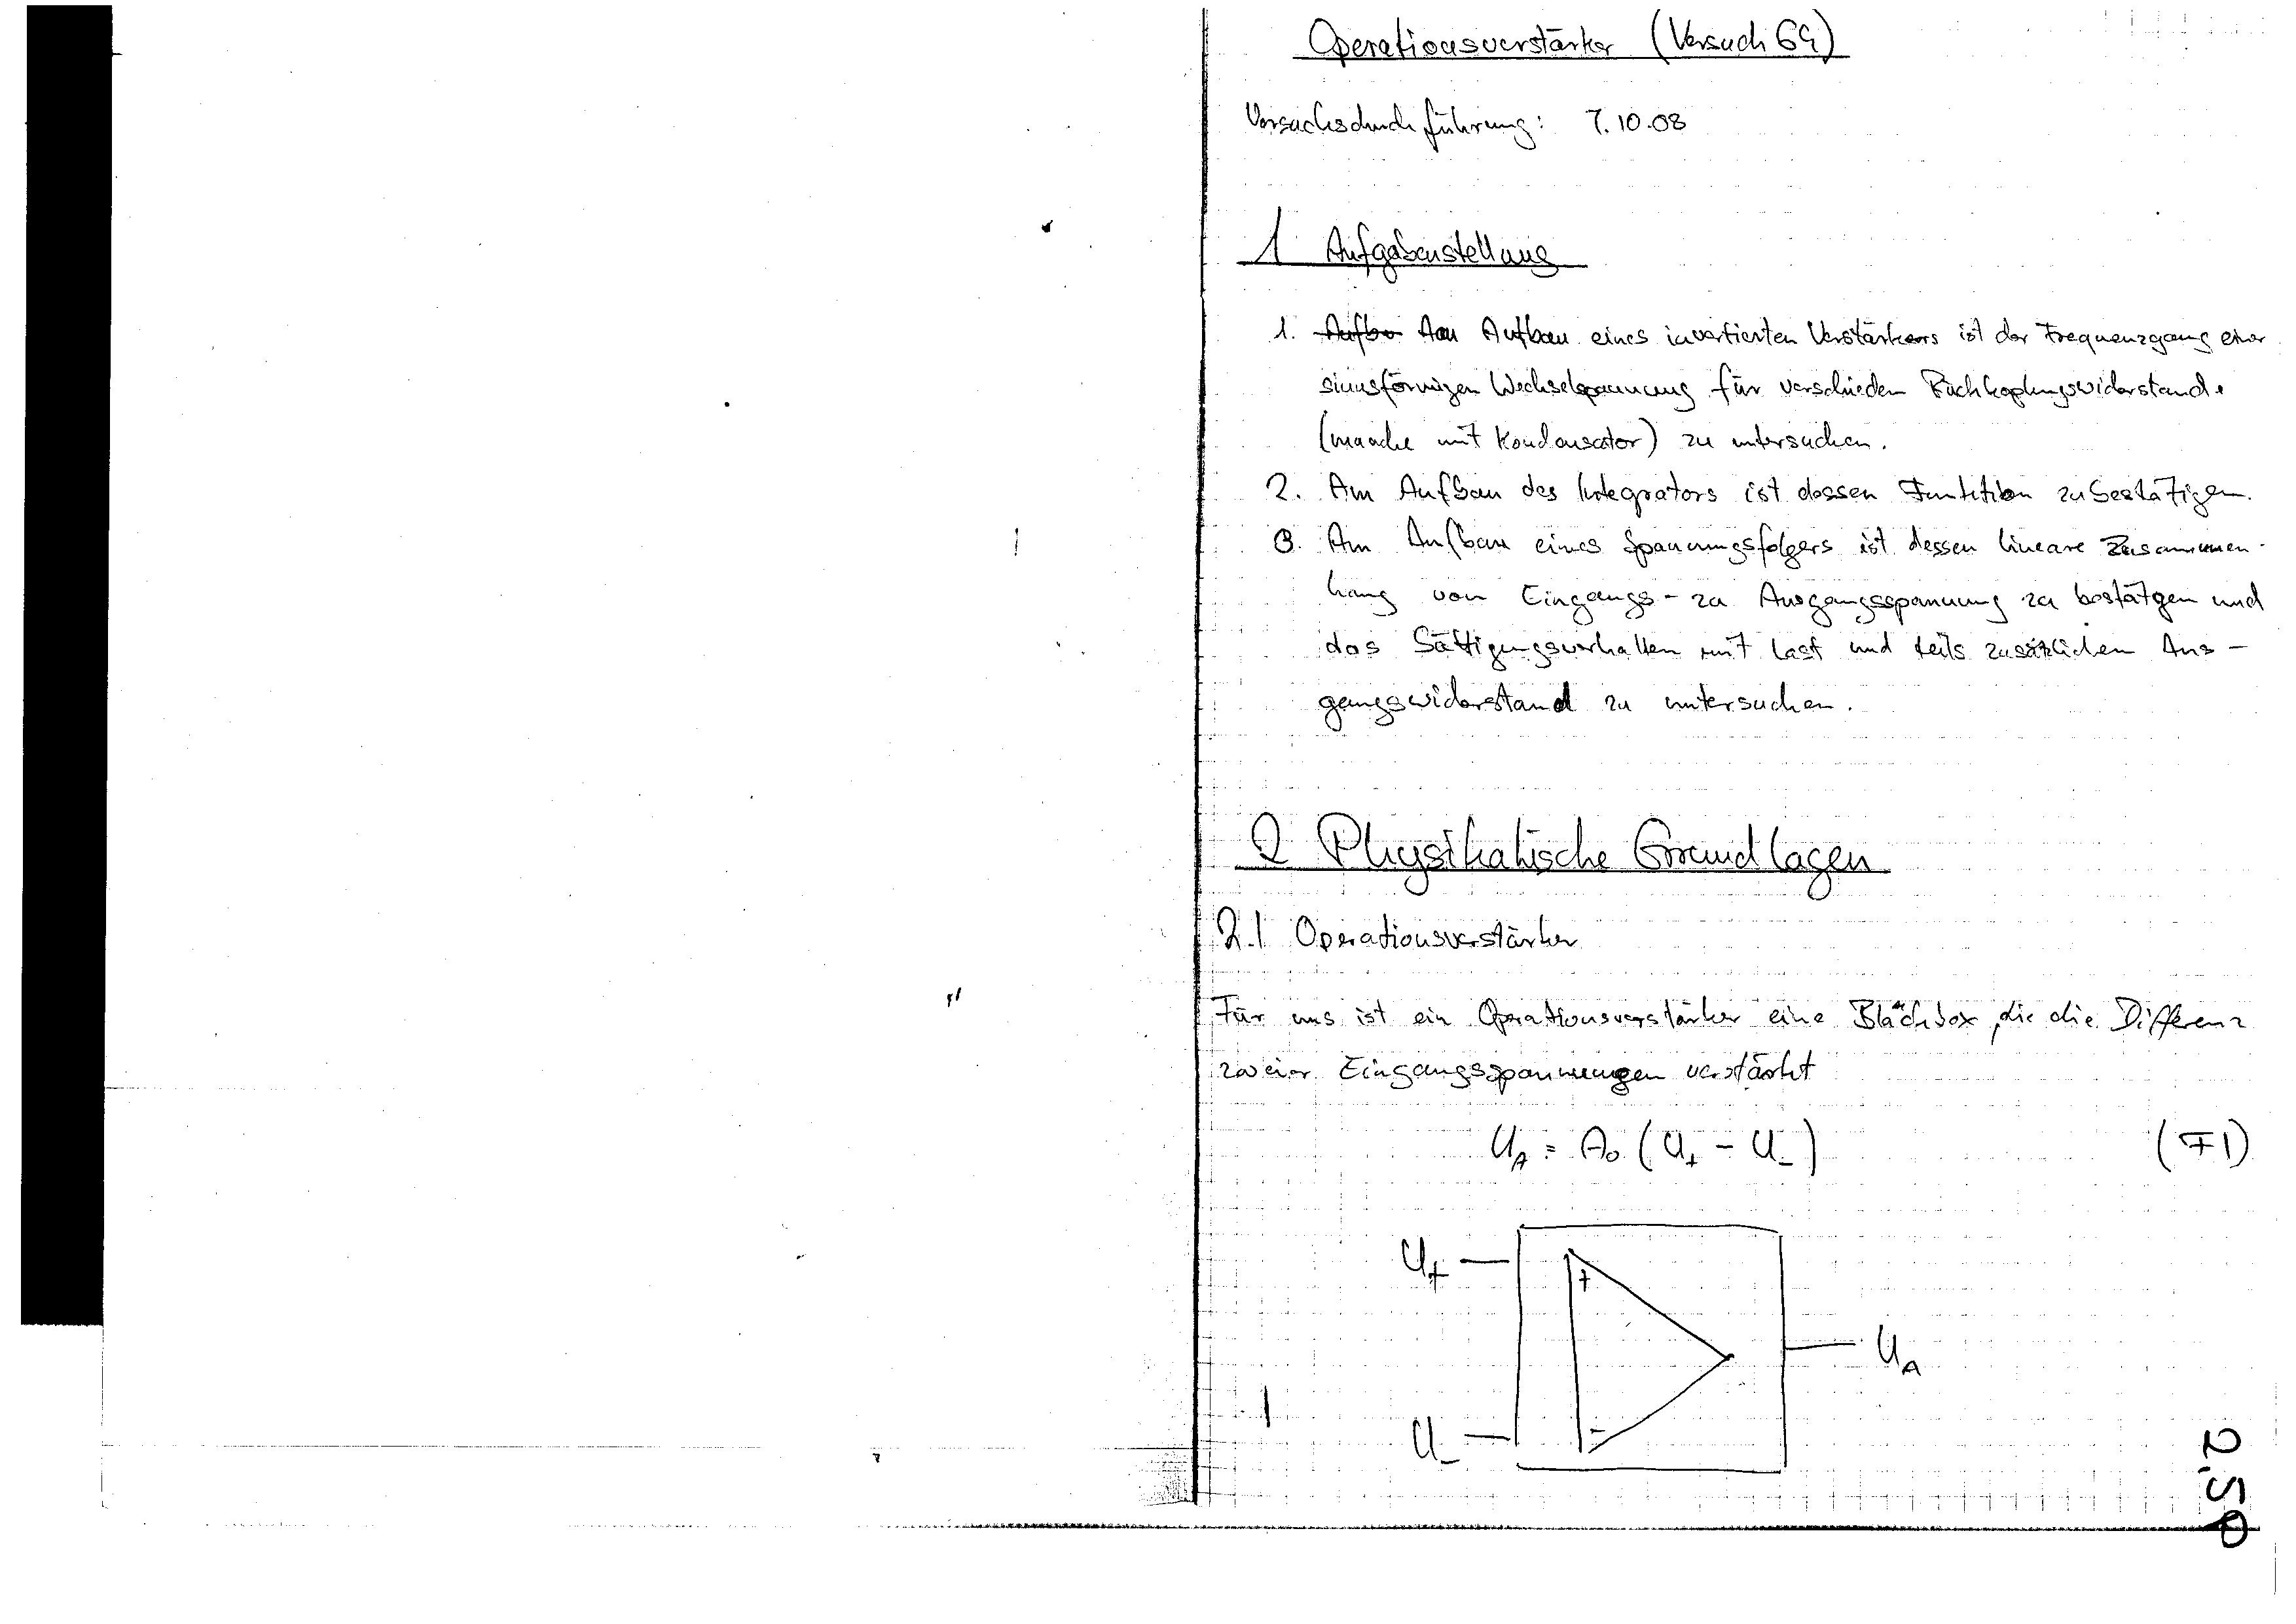 Operationsverstärker (Versuch 64)
Versuchsdurchführung: 7.10.08
1 Aufgabenstellung
1. Aufba Am Aufbau eines invertierten Verstärkers ist der Frequenzgang einer
sinusförmigen Wechselspannung für verschieden Rückkopplungswiderstände
(manche mit Kondensator) zu untersuchen.
2. Am Aufbau des Integrators ist dessen Funktion zu bestätigen.
3. Am Aufbau eines Spannungsfolgers ist dessen lineare Zusammen-
hang von Eingangs- zu Ausgangsspannung zu bestätgen und
das Sättigungsverhalten mit Last und teils zusätzlichen Aus-
gangswiderstand zu untersuchen.
2 Physikalische Grundlagen
2.1 Operationsverstärker
Für uns ist ein Operationsverstärker eine Bläckbox, die die Differenz
zweier Eingangsspannungen verstärkt
U_A = A_0 (U_+ - U_-) (F1)
U_+
+
U_A
U_-
-
2,50